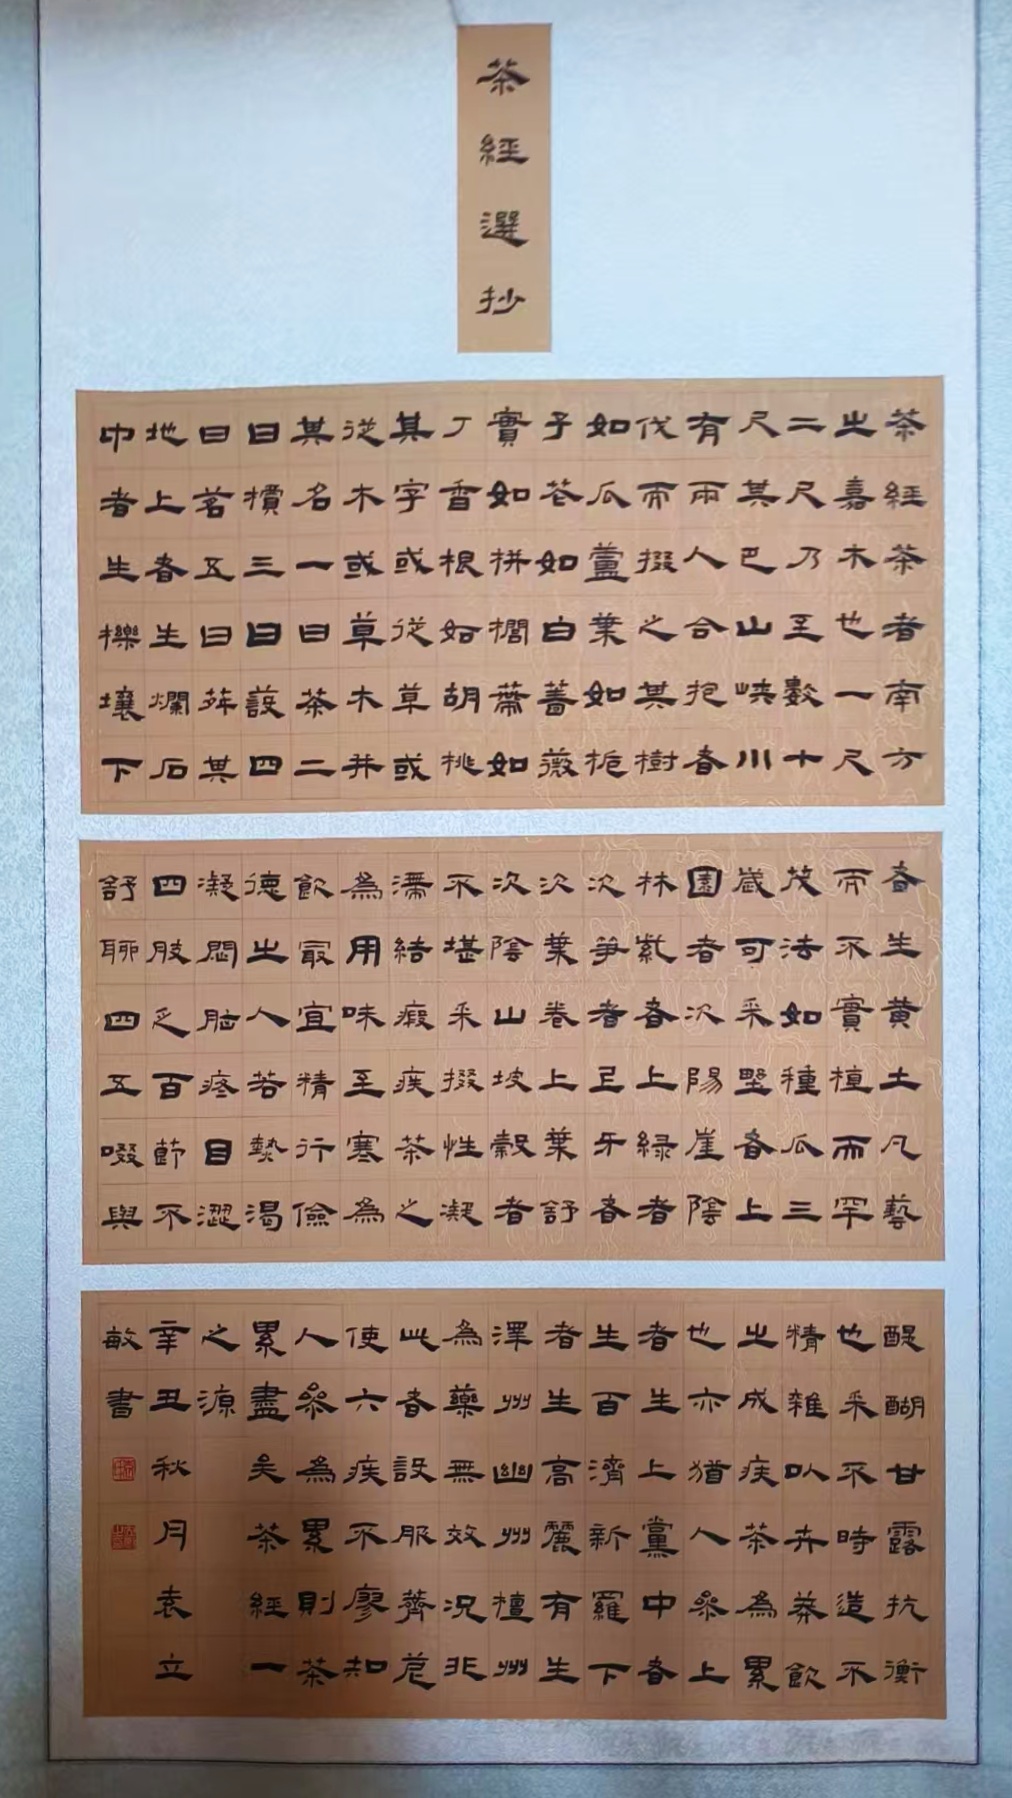 茶經選抄
茶經茶者南方
之嘉木也一尺
二尺乃至數十
尺其巴山峽川
有兩人合抱者
伐而掇之其樹
如瓜蘆葉如梔
子花如白薔薇
實如栟櫚蔕如
丁香根如胡桃
其字或從草或
從木或草木并
其名一曰茶二
曰檟三曰蔎四
曰茗五曰荈其
地上者生爛石
中者生櫟壤下
者生黄土凡藝
而不實植而罕
茂法如種瓜三
歲可采野者上
園者次陽崖陰
林紫者上綠者
次笋者上牙者
次葉卷上葉舒
次陰山坡穀者
不堪采掇性凝
滯結瘕疾茶之
為用味至寒為
飲最宜精行儉
德之人若熱渴
凝悶腦疼目澀
四肢乏百節不
舒聊四五啜與
醍醐甘露抗衡
也采不時造不
精雜以卉莽飲
之成疾茶為累
也亦猶人參上
者生上黨中者
生百濟新羅下
者生高麗有生
澤州幽州檀州
為藥無效況非
此者設服薺苨
使六疾不廖知
人參為累則茶
累盡矣茶經一
之源
辛丑秋月袁立
敏書